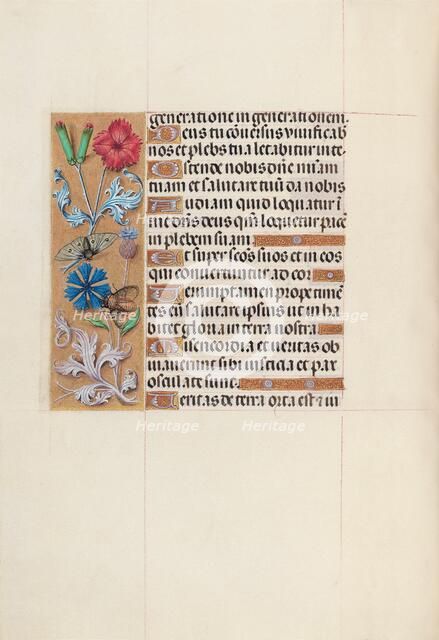 generatione in generationem.
Deus tu cōversus vivificab
nos et plebs tua letabitur in te.
Ostende nobis dn̄e mi͞am
tuam et salutare tuū da nobis
Audiam quid loquatur i
me dn̄s deus qm̄ loquetur pacē
in plebem suam.
Et super sc̄os suos et in eos
qui convertuntur ad cor
me
tes eū salutare ipsius ut in ha
bitet gloria in terra nostra
Misericordia et veritas ob
viaverunt sibi iusticia et pax
osculate sunt.
Veritas de terra orta est et iu
Heritage Heritage
Heritage Heritage
Heritage Heritage